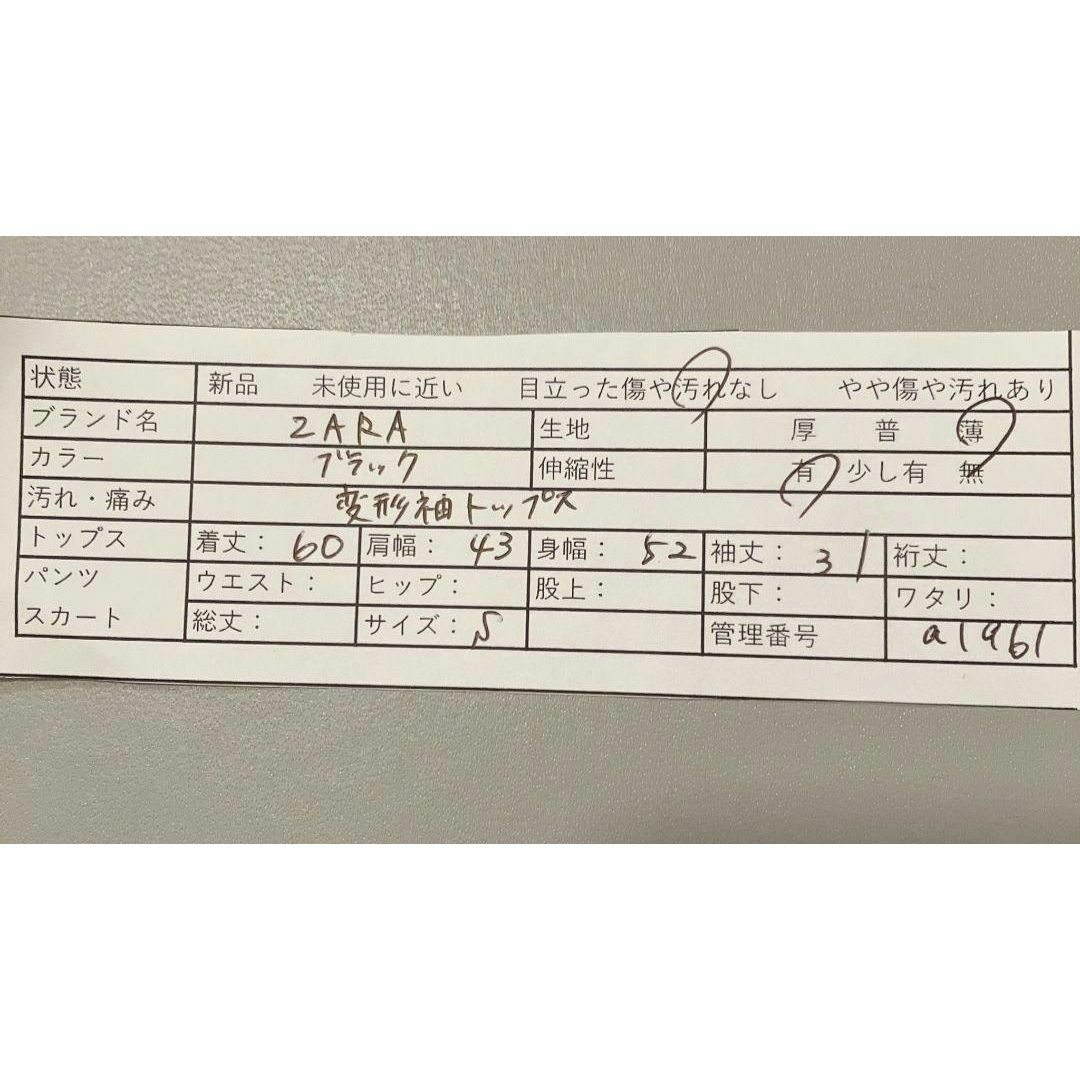 状態 新品 未使用に近い 目立った傷や汚れなし やや傷や汚れあり
ブランド名 ZARA 生地 厚 普 薄
カラー ブラック 伸縮性 有 少し有 無
汚れ・痛み 変形袖トップス
トップス 着丈: 60 肩幅: 43 身幅: 52 袖丈: 31 裄丈:
パンツ ウエスト: ヒップ: 股上: 股下: ワタリ:
スカート 総丈: サイズ: S 管理番号 a1961